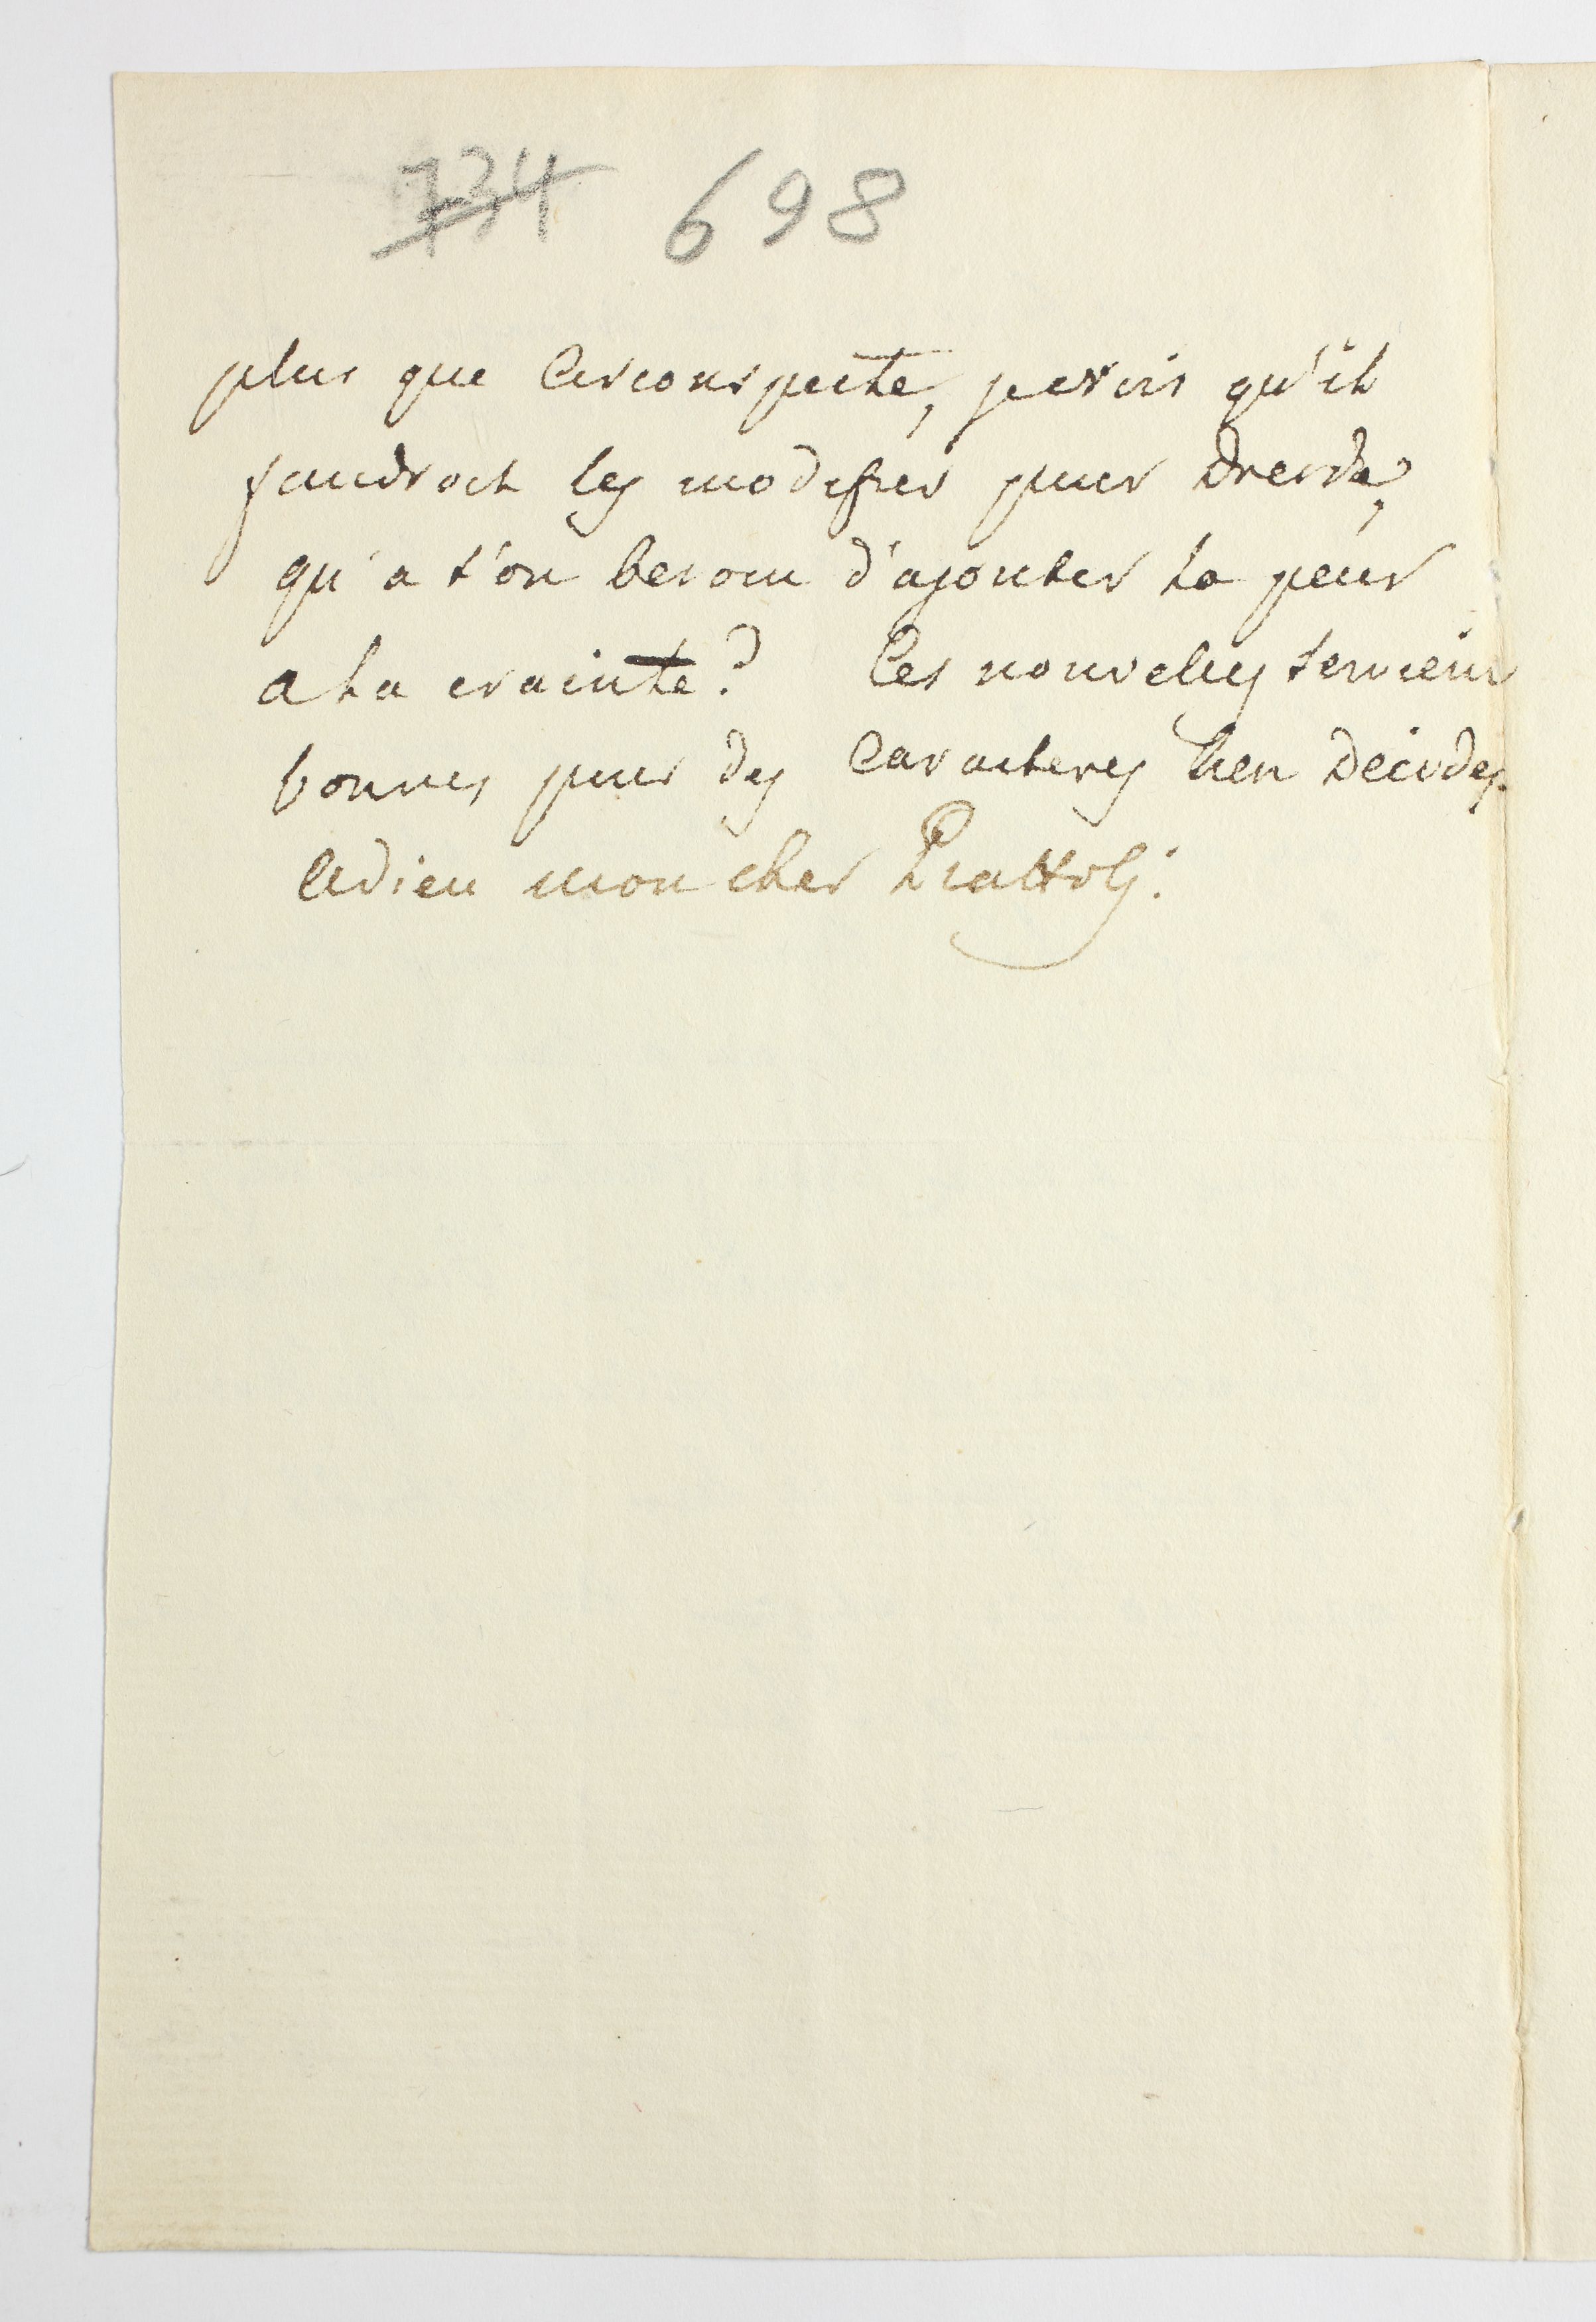 734 698
plus que Circonspecte, je crois qu'il
faudroit les modifier pour Dresde,
qu'a t'on besoin d'ajouter la peur
a la crainte? Ces nouvelles seroient
bonnes pour des Caracteres bien Décidés.
Adieu mon cher Piattoli.